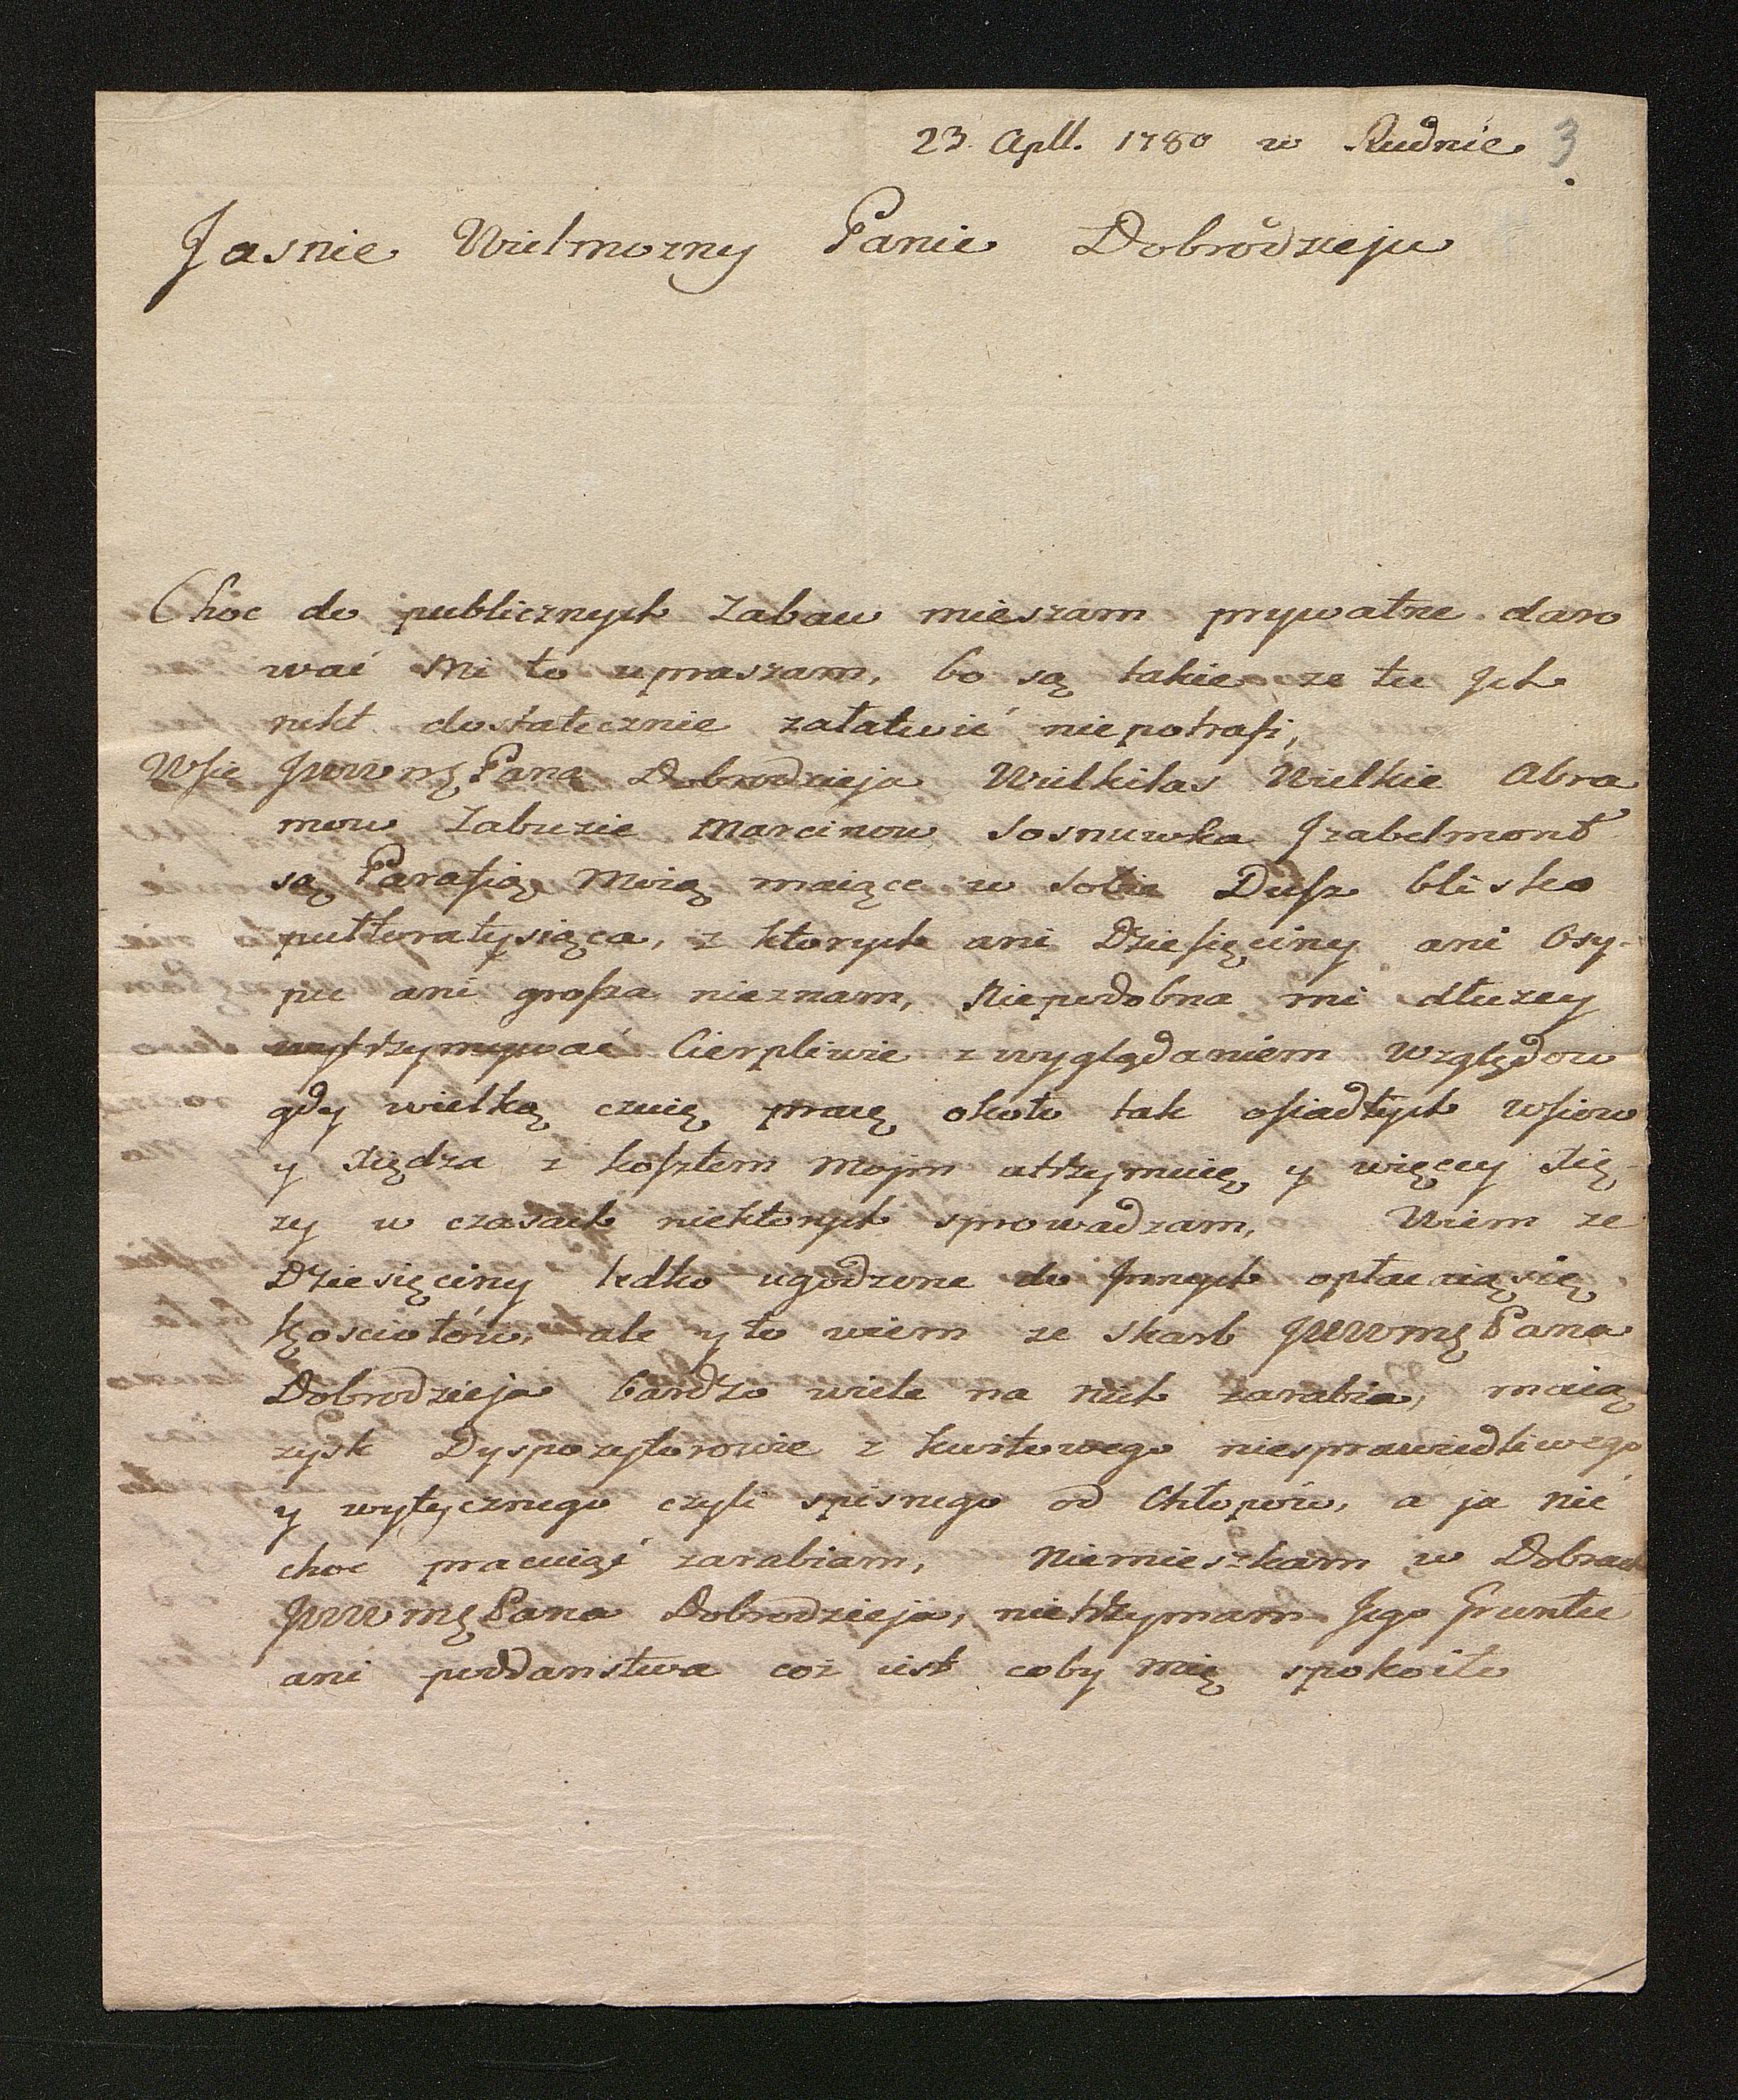 23. Apll. 1780 w Rudnie 3
Jasnie Wielmozny Panie Dobrodzieju
Choc do publicznych Zabaw mieszam prywatne daro
wać mi to upraszam, bo są takie ze tu Jch
nikt dostatecznie załatwić niepotrafi,
Wsie JWWmę Pana Dobrodzieja Wielkilas Wielkie Abra
mow Zabuzie Marcinow Sosnuwka Jzabelmont
są Parafią Moią maiące w Sobie Dusz blisko
pułtoratysiąca, z ktorych ani Dziesięciny ani Osy-
pu ani grosza nieznam, Niepodobna mi dłuzey
wystrzymywać Cierpliwie z wyglądaniem Względow
gdy wielką czuię pracę około tak osiadłych wsiow
y Xiędza z kosztem Mojm utrzymuię y więcey Xię
zy w czasach niektorych sprowadzam, Wiem ze
Dziesięciny lędko ugodzone do Jnnych opłacaią się
Kosciołów, ale y to wiem ze Skarb JWWmę Pana
Dobrodzieja bardzo wiele na nich zarabia, maią
zysk Dyspozytorowie z kurtowego niesprawiedliwego
y wytycznego czyli spisnego od Chłopów, a ja nić
choc pracuiąć zarabiam, Niemieszkam w Dobrach
JWWmę Pana Dobrodzieja, nietrzymam Jego Gruntu
ani poddanstwa coż iest coby mię spokoiło